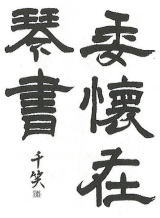 委懷在
琴書
千笑